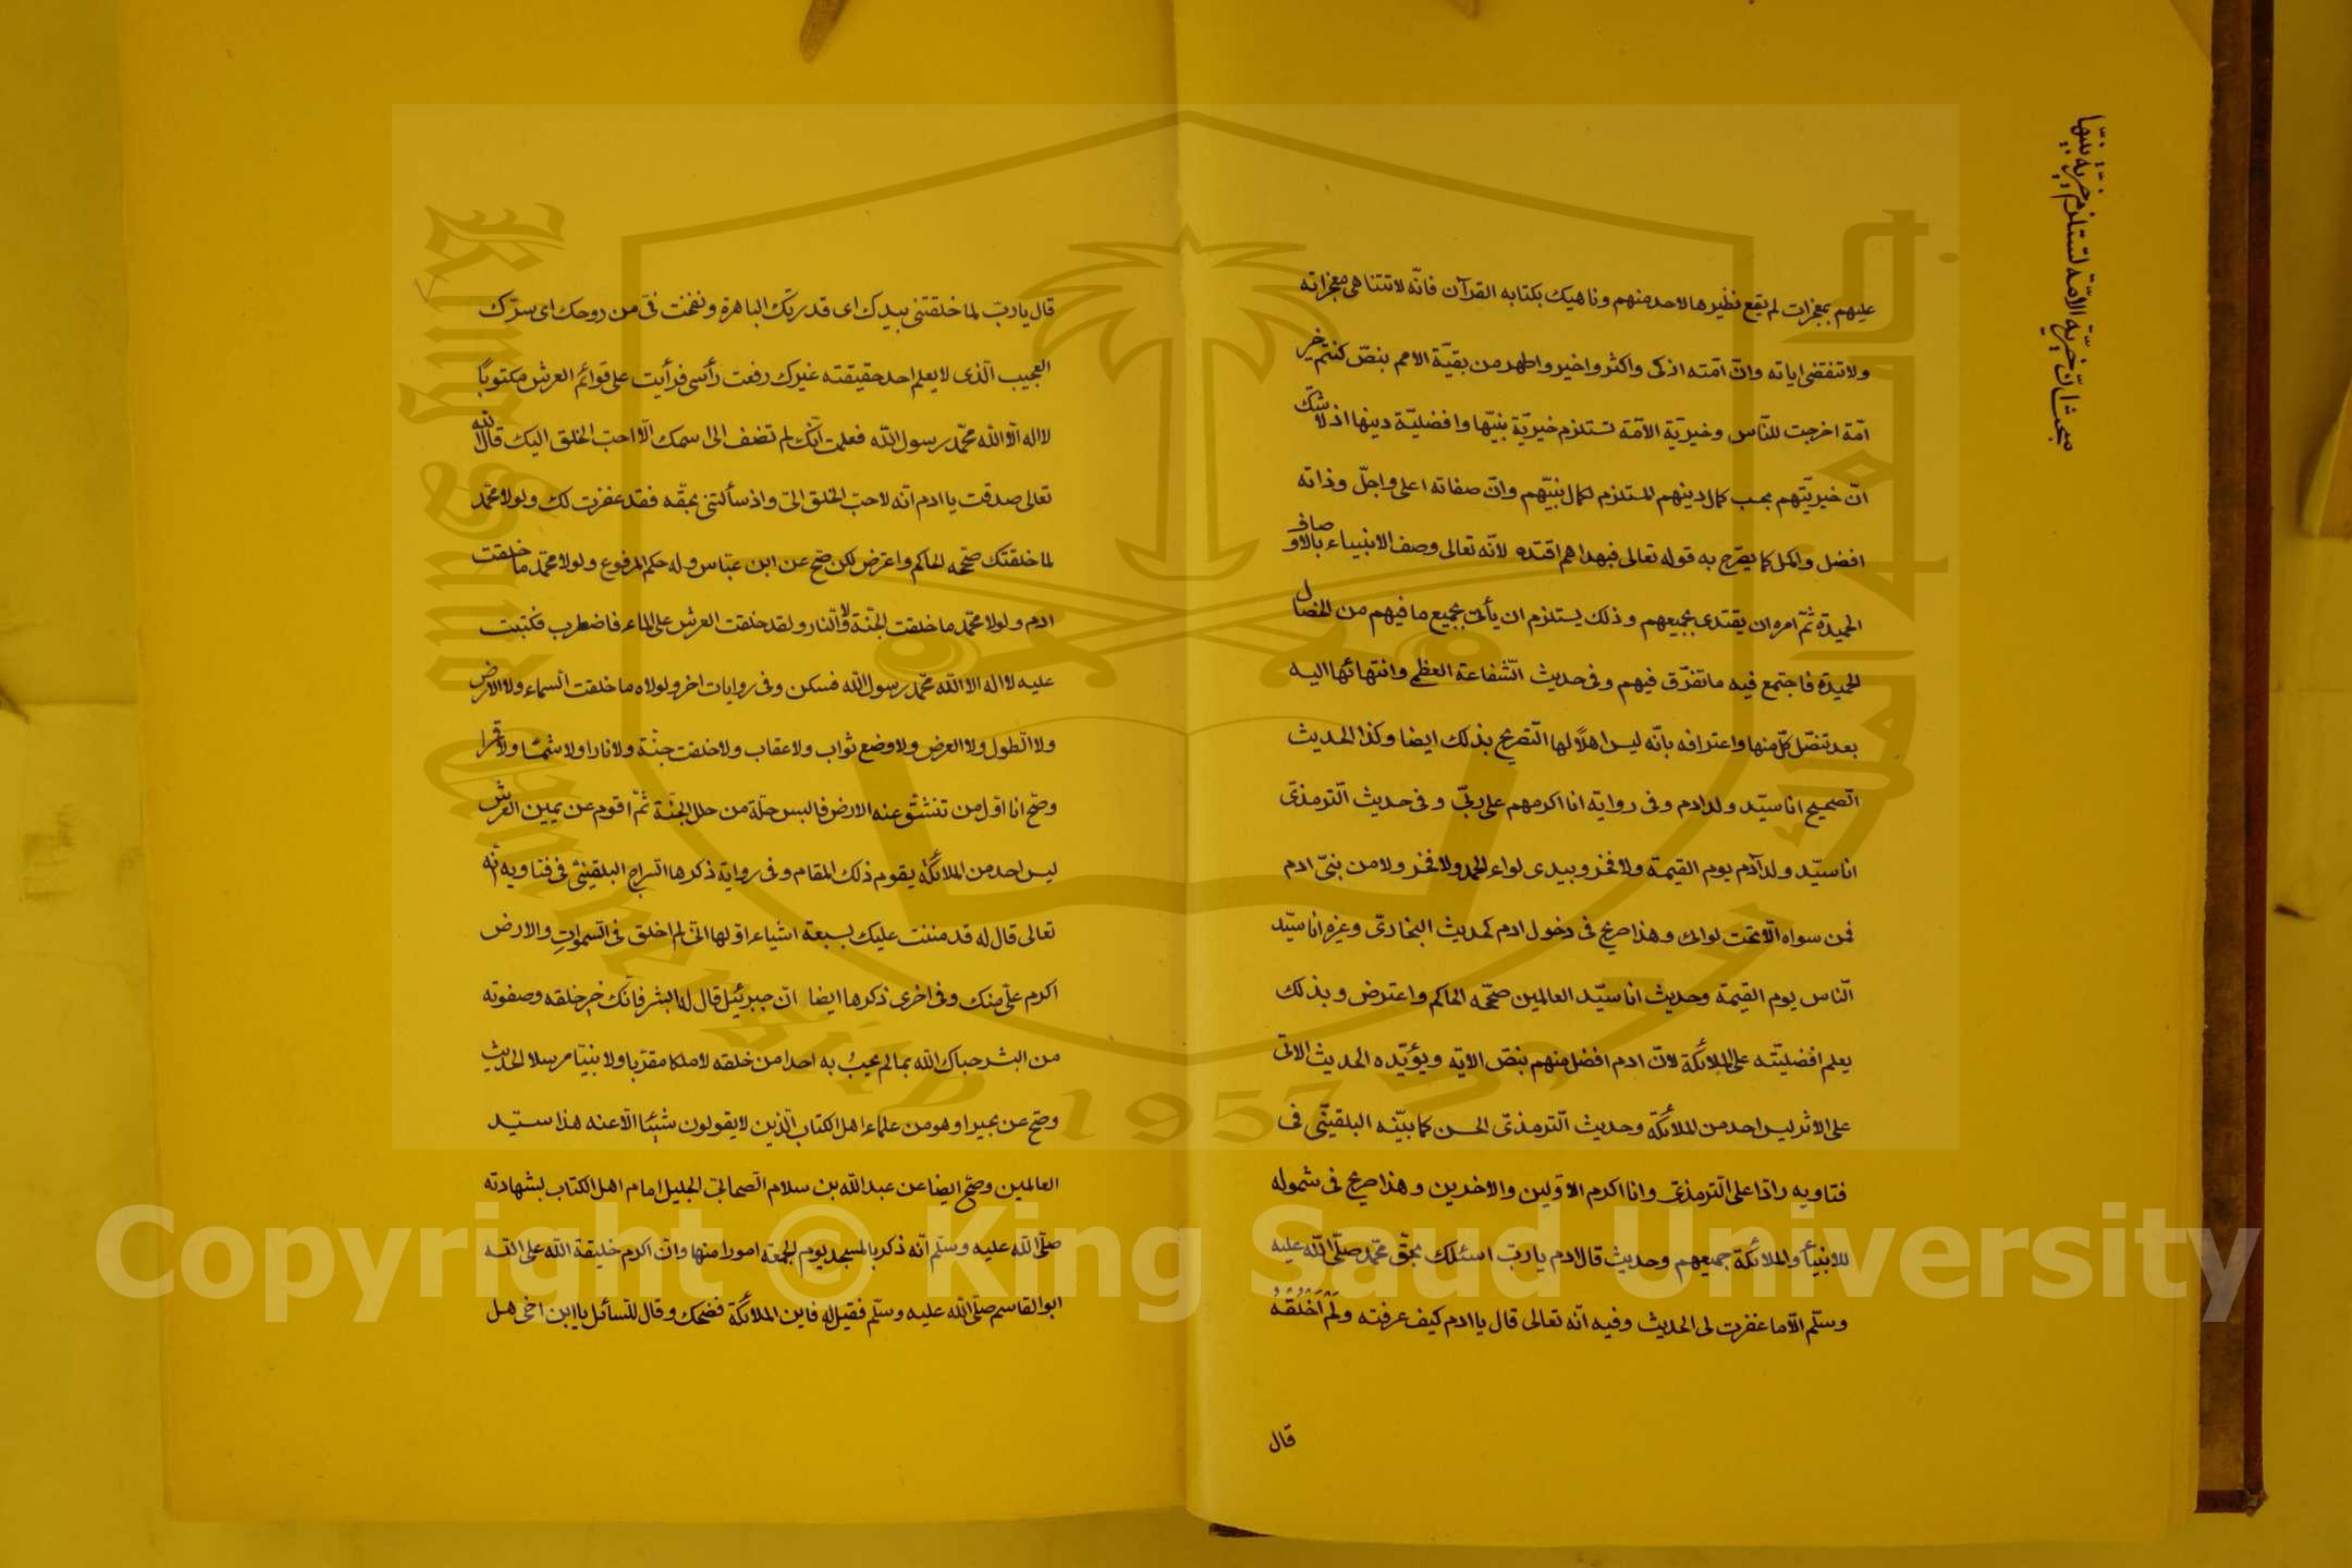 مبحث انّ خيريّة الامّة تستلزم خيريّة نبيّها
عليهم بمعجزات لم يقع نظيرها لاحد منهم وناهيك بكتابه القرآن فانّه لا تتناهى معجزاته
ولا تنقضى اياته وانّ امّته ازكى واكثر واخير واطهر من بقيّة الامم بنصّ كنتم خير
امّة اخرجت للنّاس وخيريّة الامّة تستلزم خيريّة نبيّها وافضليّة دينها اذ لا شكّ
انّ خيريّتهم بحسب كمال دينهم المستلزم لكمال نبيّهم وانّ صفاته اعلى واجلّ وذاته
افضل واكمل كما يصرّح به قوله تعالى فبهداهم اقتده لانّه تعالى وصف الانبياء بالاوصاف
الحميدة ثمّ امره ان يقتدى بجميعهم وذلك يستلزم ان يأتى بجميع ما فيهم من الخصال
الحميدة فاجتمع فيه ما تفرّق فيهم وفى حديث الشّفاعة العظمى وانتهائها اليه
بعد تنصّل كلّ منها واعترافه بانّه ليس اهلًا لها التّصريح بذلك ايضا وكذا الحديث
الصّحيح انا سيّد ولد ادم وفى رواية انا اكرمهم على ربّى وفى حديث التّرمذىّ
انا سيّد ولد آدم يوم القيمة ولا فخر وبيدى لواء الحمد ولا فخر ولا من بنىّ ادم
فمن سواه الّا تحت لوائى وهذا صريح فى دخول ادم كحديث البخارىّ وغيره انا سيّد
النّاس يوم القيمة وحديث انا سيّد العالمين صحّحه الحاكم واعترض وبذلك
يعلم افضليّته على الملائكة لانّ ادم افضل منهم بنصّ الاية ويؤيّده الحديث الاتى
على الاثر ليس احد من الملائكة وحديث التّرمذىّ الحسن كما بيّنه البلقينّى فى
فتاويه رادّا على التّرمذىّ وانا اكرم الاوّلين والاخرين وهذا صريح فى شموله
للانبيأ والملائكة جميعهم وحديث قال ادم يا ربّ اسئلك بحقّ محمّد صلّى الله عليه
وسلّم الّا ما غفرت لى الحديث وفيه انّه تعالى قال يا ادم كيف عرفته ولَمْ اَخْلُقْهُ
قال
قال يا ربّ لما خلقتنى بيدك اى قدرتك الباهرة ونفخت فىّ من روحك اى سرّك
العجيب الّذى لا يعلم احد حقيقته غيرك رفعت رأسى فرأيت على قوائم العرش مكتوبًا
لا اله الّا الله محمّد رسول الله فعلمت انّك لم تضف الى اسمك الّا احبّ الخلق اليك قال الله
تعالى صدقت يا ادم انّه لاحبّ الخلق الىّ واذ سألتنى بحقّه فقد غفرت لك ولولا محمّد
لما خلقتك صحّحه الحاكم واعترض لكن صحّ عن ابن عبّاس وله حكم المرفوع ولولا محمّد ما خلقت
ادم ولولا محمّد ما خلقت الجنّة ولا النّار ولقد خلقت العرش على الماء فاضطرب فكتبت
عليه لا اله الا الله محمّد رسول الله فسكن وفى روايات اخر ولولاه ما خلقت السّماء ولا الارض
ولا الطّول ولا العرض ولا وضع ثواب ولا عقاب ولا خلقت جنّة ولا نارا ولا شمسًا ولا قمرا
وصحّ انا اوّل من تنشقّ عنه الارض فالبس حلّة من حلل الجنّة ثمّ اقوم عن يمين العرش
ليس احد من الملائكة يقوم ذلك المقام وفى رواية ذكرها السّراج البلقينىّ فى فتاويه انّه
تعالى قال له قد مننت عليك بسبعة اشياء اوّلها انّى لم اخلق فى السّموات والارض
اكرم علىّ منك وفى اخرى ذكرها ايضا انّ جبرئيل قال له ابشر فانّك خير خلقه وصفوته
من البشر حباك الله بما لم يحبُ به احدا من خلقه لا ملكا مقرّبا ولا نبيّا مرسلا الحديث
وصحّ عن بحيرا وهو من علماء اهل الكتاب الّذين لا يقولون شيئا الّا عنه هذا سيّد
العالمين وصحّ ايضا عن عبد الله بن سلام الصّحابىّ الجليل امام اهل الكتاب بشهادته
صلّى الله عليه وسلّم انّه ذكر بالمسجد يوم الجمعة امورا منها وانّ اكرم خليقة الله على الله
ابو القاسم صلّى الله عليه وسلّم فقيل له فاين الملائكة فضحك وقال للسّائل يا ابن اخى هل
King Saud University
1957
Copyright © King Saud University